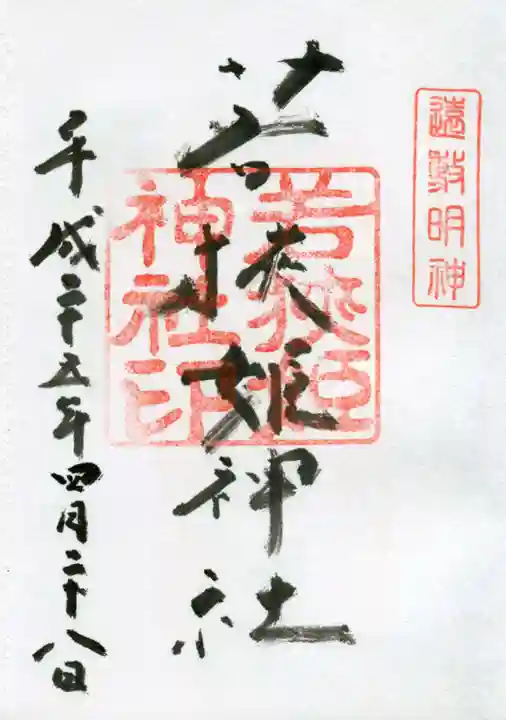 遠敷明神
若狭姫神社
若狭姫
神社印
平成二十五年四月二十八日